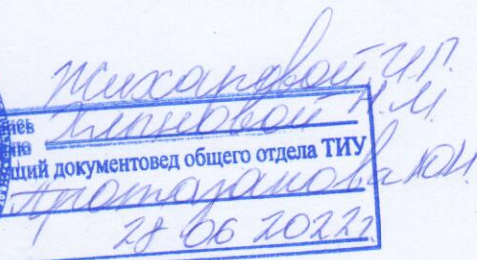 Жихандвой И.П.
Хлыновой Н.М.
щий документовед общего отдела ТИУ
Протазанова Ю.Н.
28 06 2022г